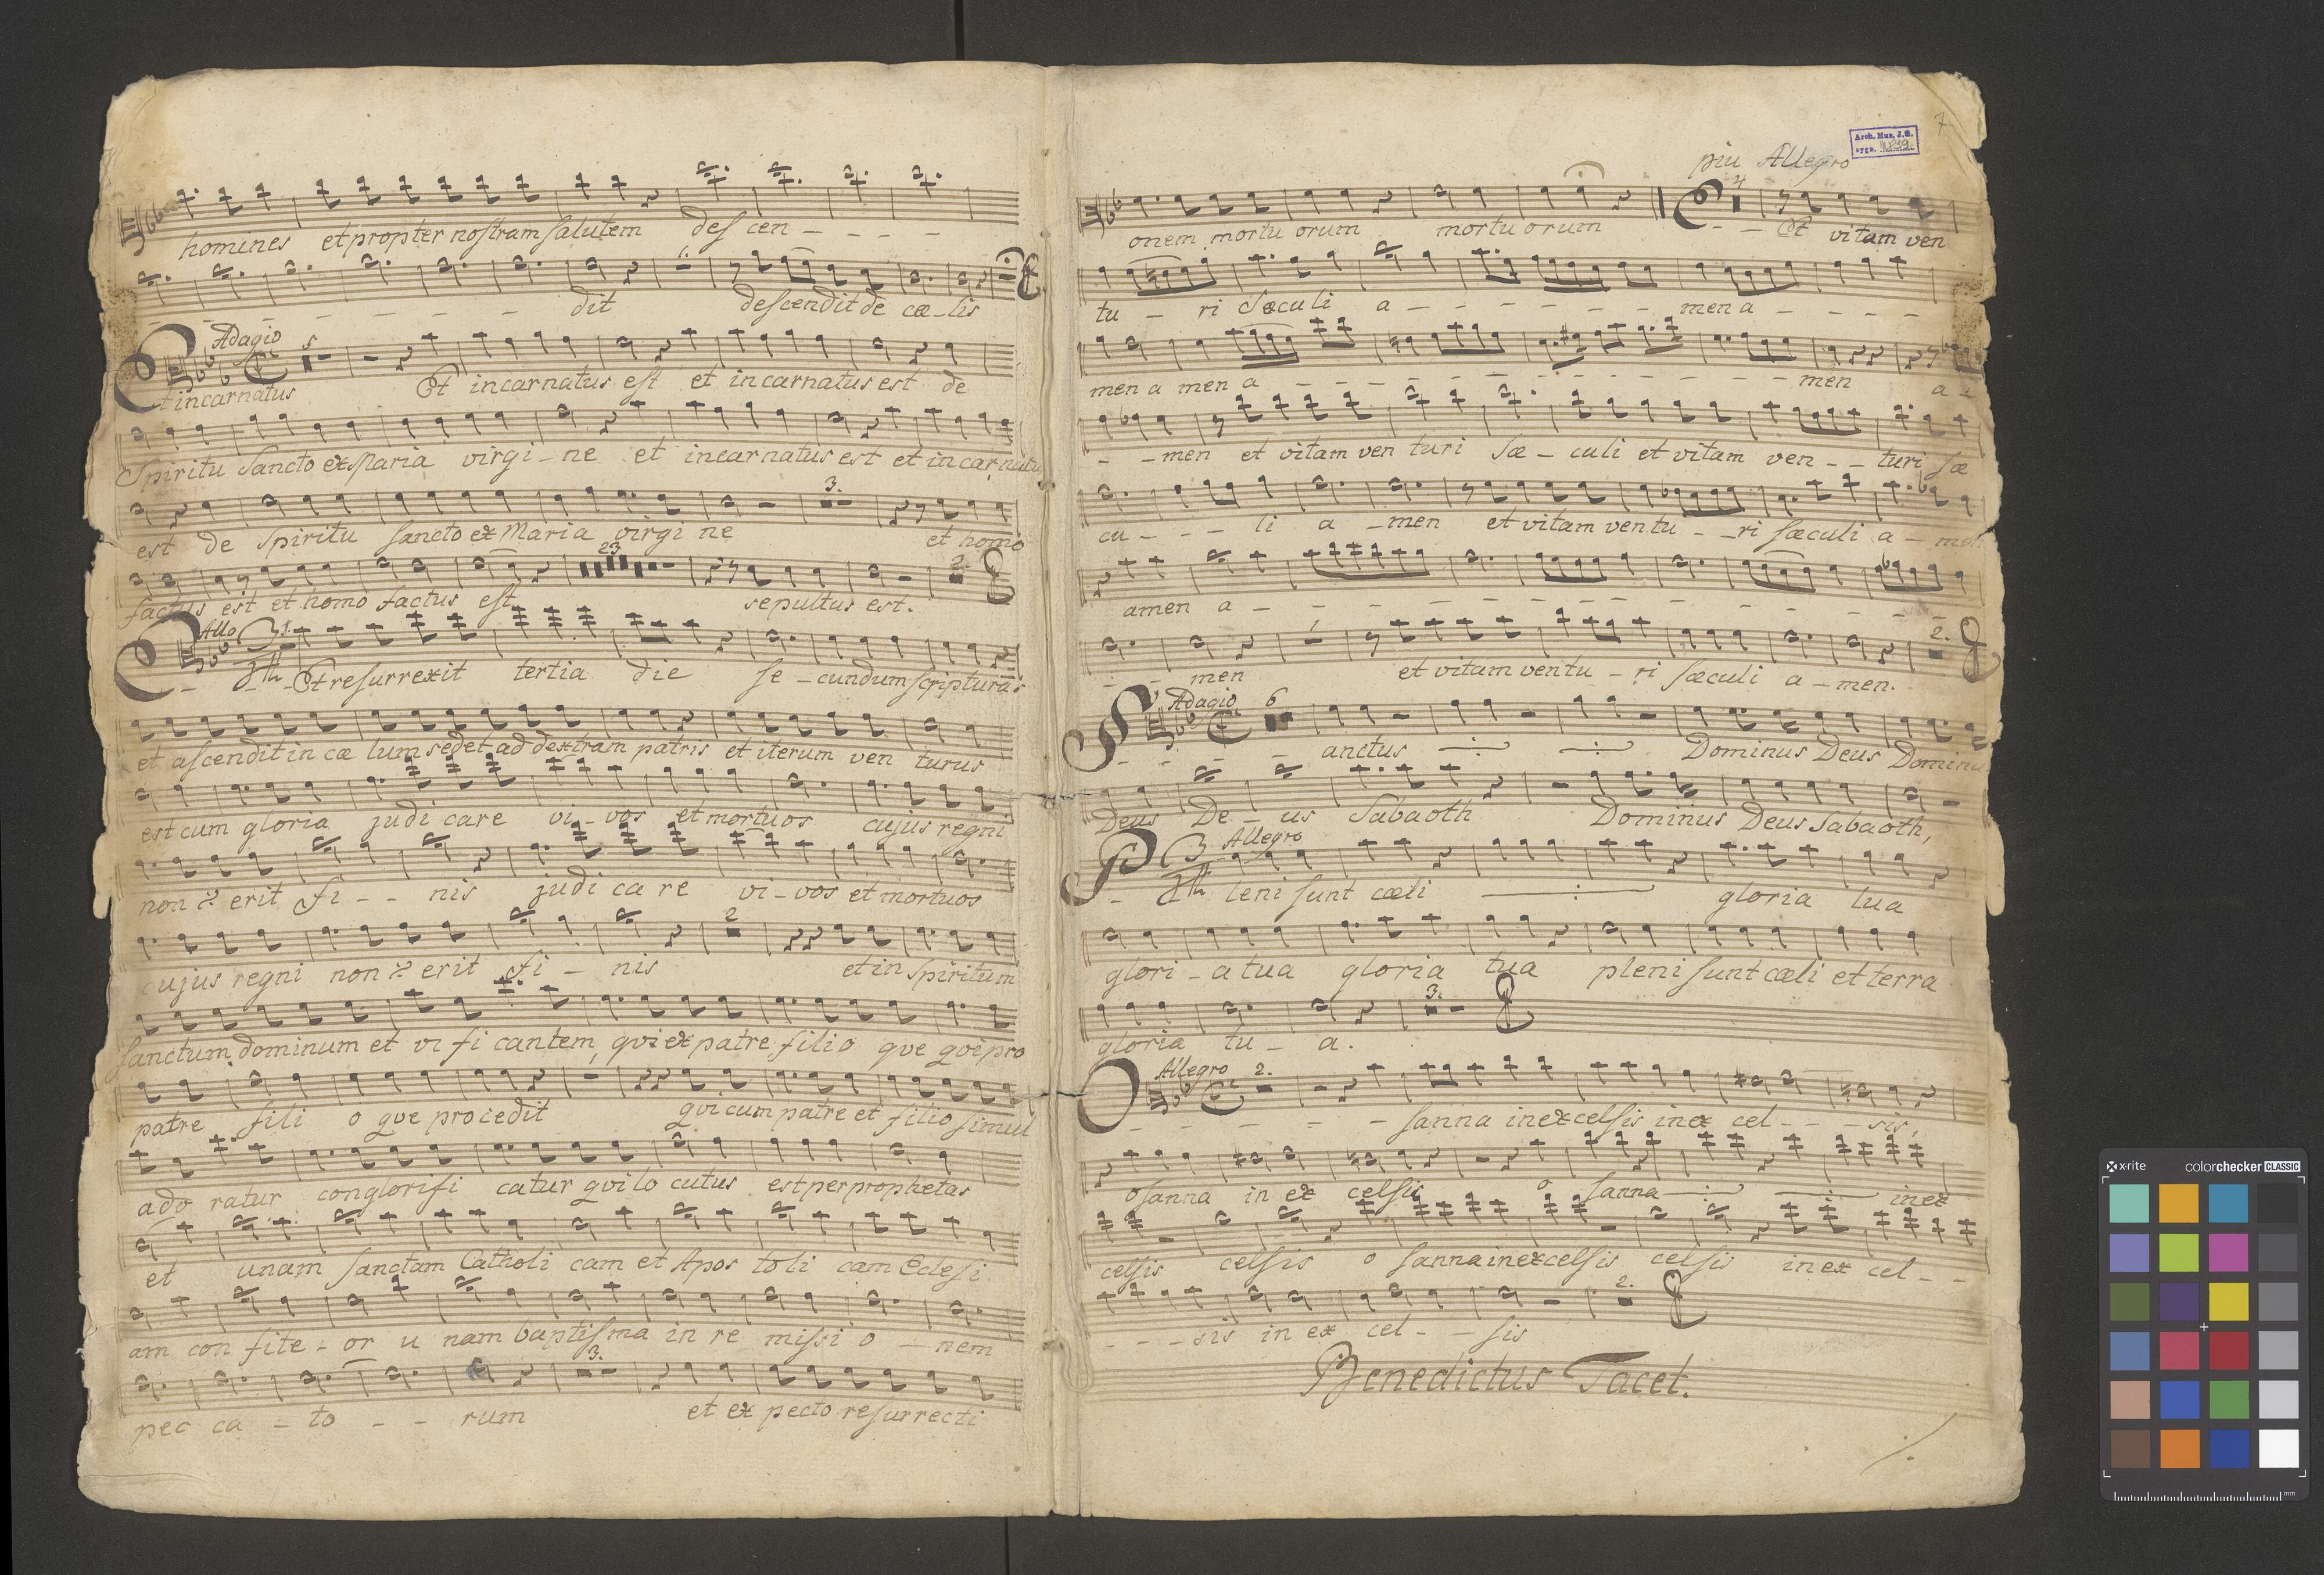 homines et propter nostram salutem des cen - - - -
- - - - - - dit descendit de cœ - lis
Adagio 5
Et incarnatus Et incarnatus est et incarnatus est de
Spiritu Sancto ex Maria virgi - ne et incarnatus est et incarnatus
3.
est de Spiritu Sancto ex Maria virgi ne et homo
23 2.
factus est et homo factus est sepultus est.
Allo 3 1.
- - - Et resurrexit tertia die se - cundum scripturas
et ascendit in cœ lum sedet ad dextram patris et iterum ven turus
est cum gloria judi care vi - vos et mortuos cujus regni
non :/: erit fi - - nis judi ca re vi - vos et mortuos
2
cujus regni non :/: erit fi - nis et in Spiritum
Sanctum dominum et vi fi cantem, qvi ex patre filio qve qvi pro
patre fili o qve procedit qvi cum patre et filio simul
ado ratur conglorifi catur qvi lo cutus est per prophetas
et unam Sanctam Catholi cam et Apos toli cam Eclesi
am con fite - or u nam baptisma in re missi o - nem
3.
pec ca - to - - rum et ex pecto resurrecti
7
Arch. Muz. J.G.
sygn.
piu Allegro
4
onem mortu orum mortu orum - - Et vitam ven
tu - ri Sæculi a - - - - - - - men a - - - - -
men a men a - - - - - - - - - - - - men a -
- - men et vitam ven turi sæ - culi et vitam ven - - turi sæ
cu - - - li a - men et vitam ven tu - - ri sæculi a - men
amen a - - - - - - - - - - -
1 2.
- - men et vitam ven tu - ri sæculi a - men.
Adagio 6
S - - - - anctus :/: :/: Dominus Deus Dominus
Deus De - us Sabaoth Dominus Deus Sabaoth,
3 Allegro
P - leni sunt cœli :/: gloria tua
glori - a tua gloria tua pleni sunt cœli et terra
3.
gloria tu - a.
Allegro 2.
O - - - - - sanna in excelsis in ex cel - - - sis,
osanna in ex celsis o sanna :/: :/: in ex
celsis celsis o sanna in excelsis celsis in ex cel - -
2.
- - - sis in ex cel - - sis
Benedictus Tacet.
x-rite colorchecker CLASSIC
mm